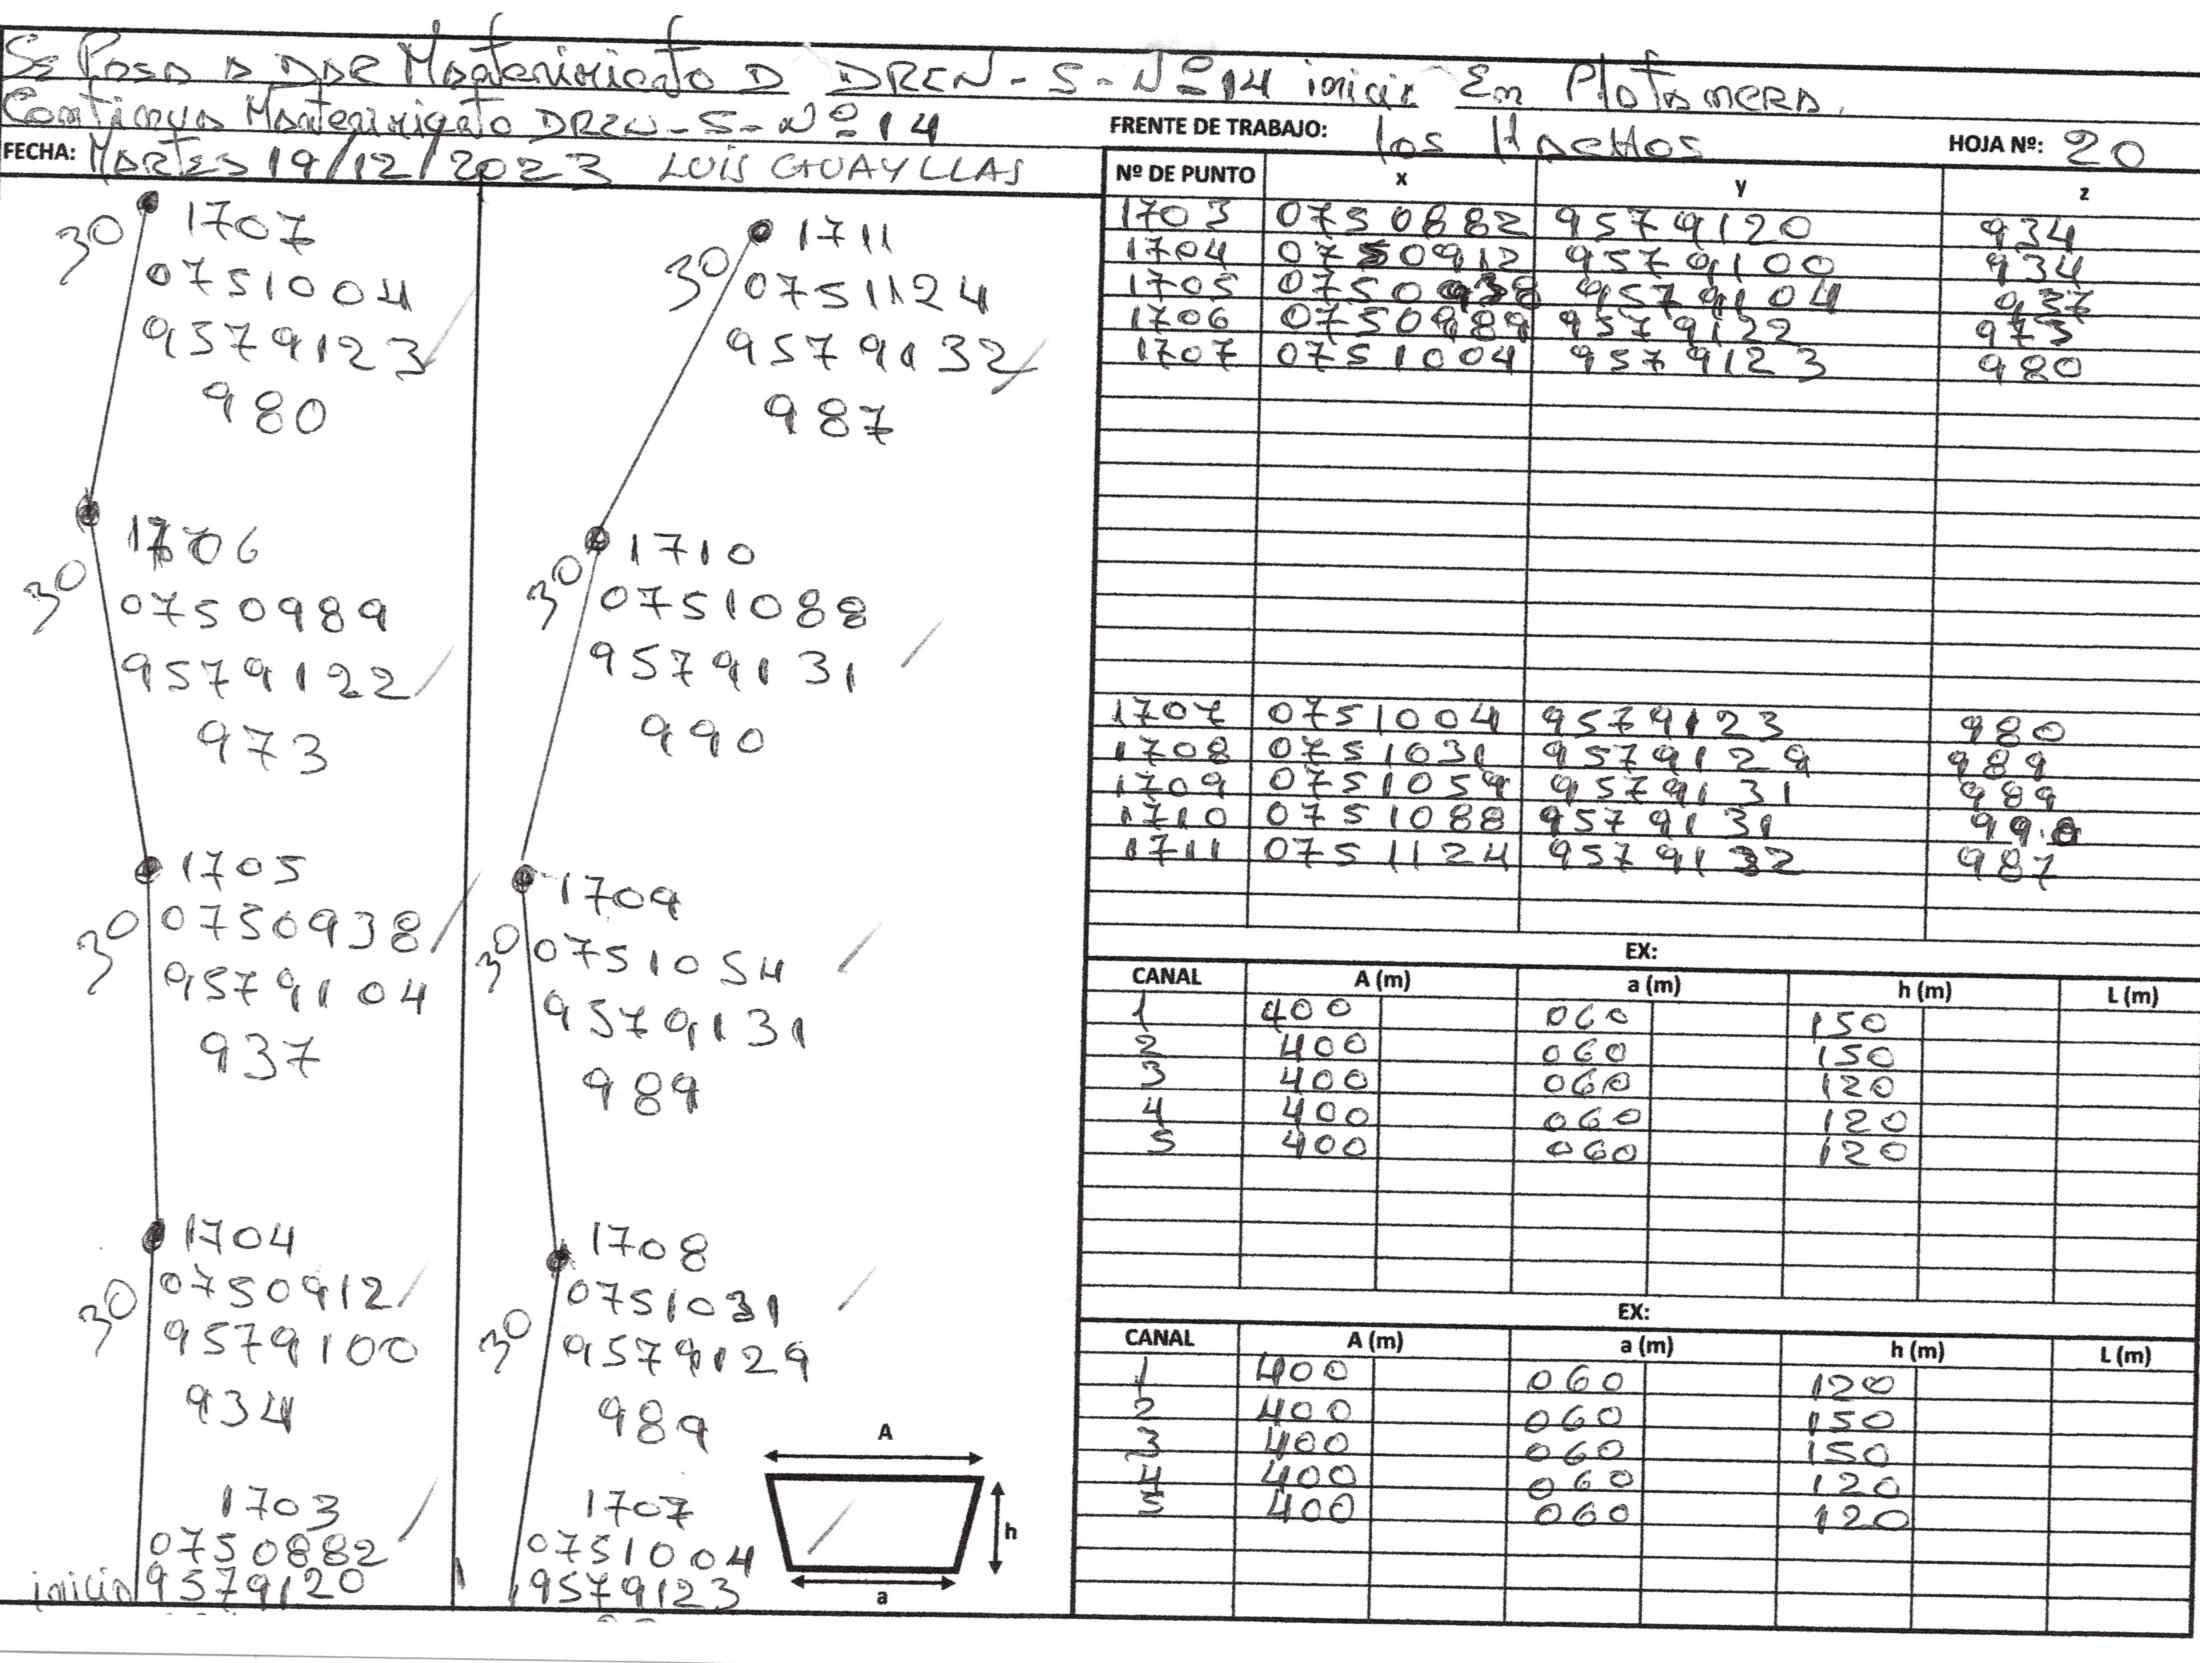 Se Pasa A DAR Mantenimiento A DREN - S - Nº 14 inicia En Platanera.
Continua Mantenimiento DREN - S - Nº 14
FRENTE DE TRABAJO: los
HOJA Nº: 20
FECHA: MARTES 19/12/2023 LUIS GUAYLLAS
30 1707
0751004
9579123
980
1706
30 0750989
9579122
973
1705
30 0750938
9579104
937
1704
30 0750912
9579100
934
1703
0750882
inicia 9579120
1711
30 0751124
9579132
987
1710
30 0751088
9579131
990
1709
30 0751054
9579131
989
1708
0751031
30 9579129
989
1707
0751004
9579123
A
h
a
Nº DE PUNTO x y z
1703 0750882 9579120 934
1704 0750912 9579100 934
1705 0750938 9579104 937
1706 0750989 9579122 973
1707 0751004 9579123 980
1707 0751004 9579123 980
1708 0751031 9579129 989
1709 0751054 9579131 989
1710 0751088 9579131 990
1711 0751124 9579132 987
EX:
CANAL A (m) a (m) h (m) L (m)
1 400 060 150
2 400 060 150
3 400 060 120
4 400 060 120
5 400 060 120
EX:
CANAL A (m) a (m) h (m) L (m)
1 400 060 120
2 400 060 150
3 400 060 150
4 400 060 120
5 400 060 120